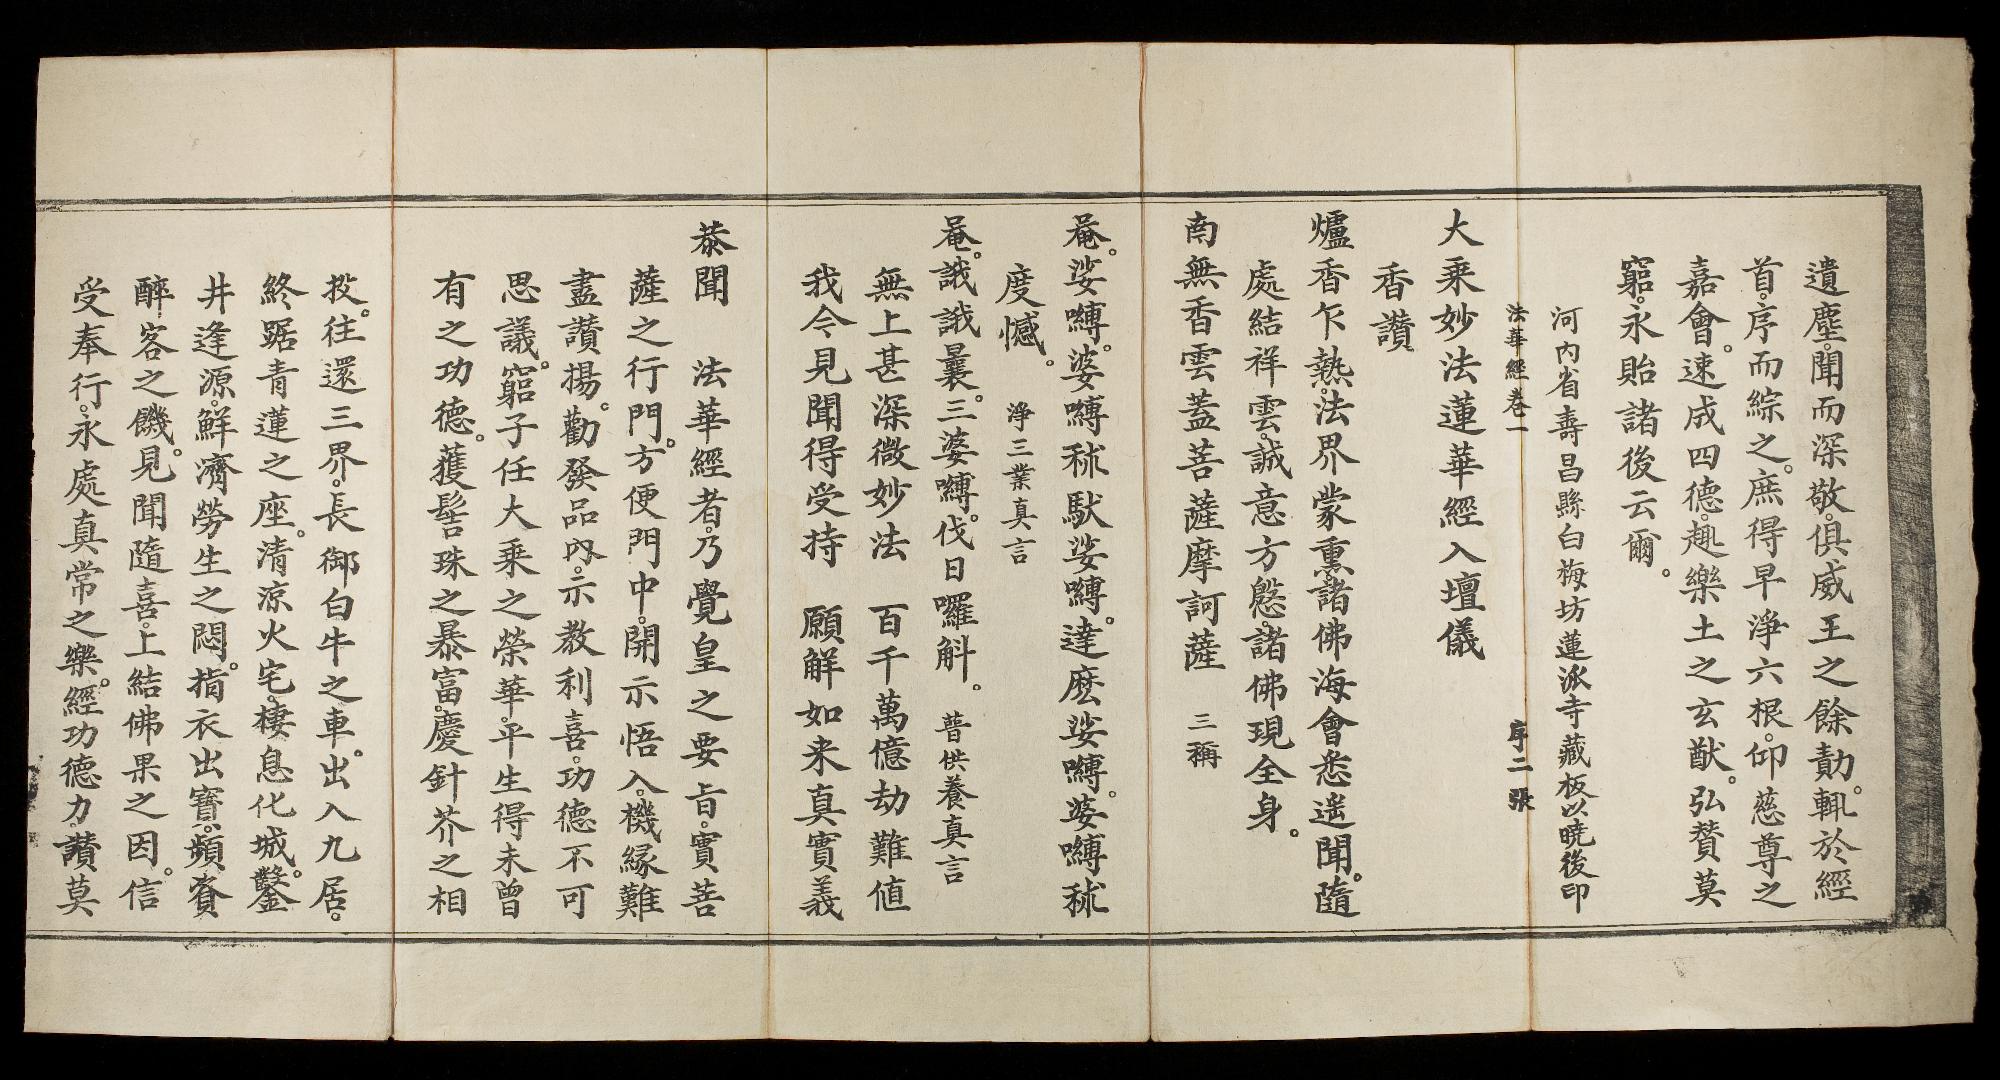 遺塵。聞而深敬。俱威王之餘勣。輒於經
首。序而綜之。庶得早淨六根。仰慈尊之
嘉會。速成四德。趣樂土之玄猷。弘賛莫
窮。永貽諸後云爾。
河內省壽昌縣白梅坊蓮派寺藏板以曉後印
法華經卷一 序二張
大乘妙法蓮華經入壇儀
香讚
爐香乍熱。法界蒙熏。諸佛海會悉遙聞。隨
處結祥雲。誠意方慇。諸佛現全身。
南無香雲蓋菩薩摩訶薩 三稱
唵。娑嚩。婆嚩秫馱娑嚩。達麽娑嚩。婆嚩秫
度憾。 淨三業真言
唵。誐誐曩。三婆嚩。伐日囉斛。 普供養真言
無上甚深微妙法 百千萬億劫難值
我今見聞得受持 願解如来真實義
恭聞 法華經者。乃覺皇之要旨。實菩
薩之行門。方便門中。開示悟入。機緣難
盡讚揚。勸發品內。示教利喜。功德不可
思議。窮子任大乘之榮華。平生得未曾
有之功德。獲髻珠之暴富。慶針芥之相
投。往還三界。長御白牛之車。出入九居。
終踞青蓮之座。清凉火宅。棲息化城。鑿
井逢源。鮮濟勞生之悶。指衣出寶。頻賓
醉客之饑。見聞隨喜。上結佛果之因。信
受奉行。永處真常之樂。經功德力。讚莫